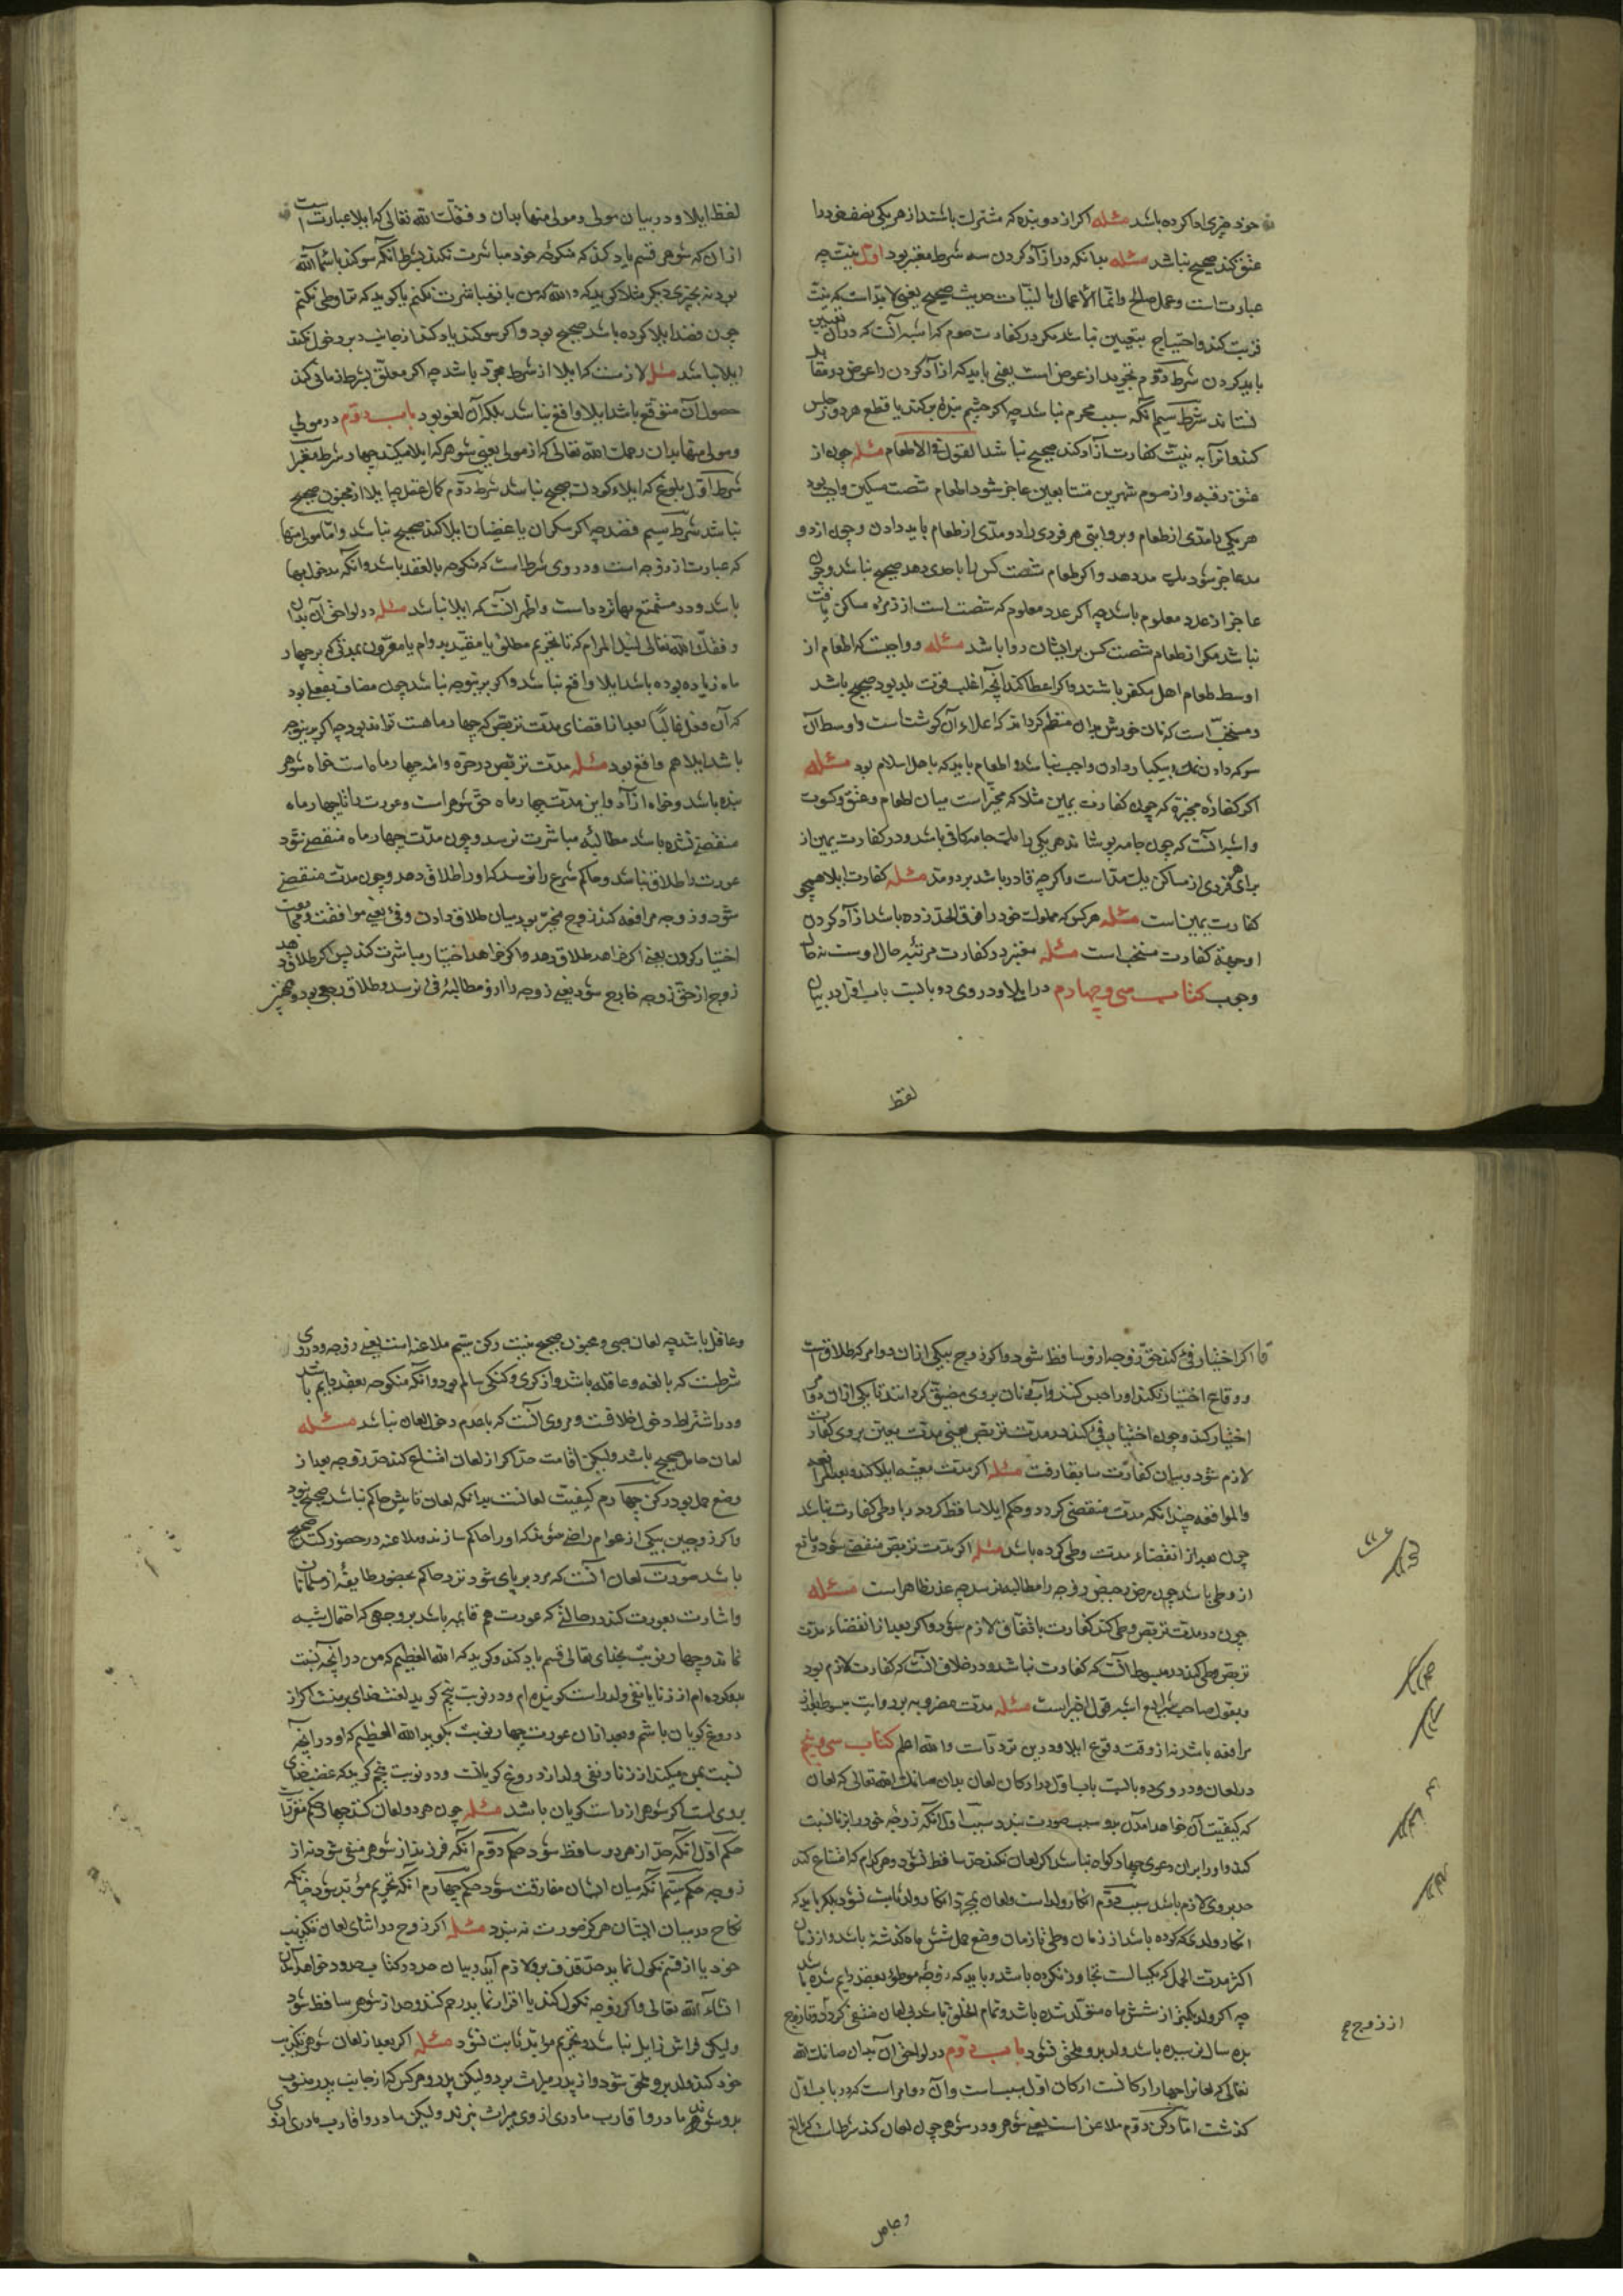 خود جزی ادا کرده باشد مسئله اکر از دو بنده که مشترک باشند از هر یکی نصف خود را
عتق کند صحیح نباشد مسئله بدانکه در آزاد کردن سه شرط معتبر بود اول نیت چه
عبارتست وعمل صالح وانما الاعمال بالنیات حدیث صحیح یعنی لا بد است که نیت
قربت کند واحتیاج بتعیین نباشد مکر در کفارت صوم که اشبه آنست که در آن تعیین
باید کردن شرط دوم تجرید از عوض است یعنی باید که از آزاد کردن را عوض در مقابل
نستاند شرط سیم آنکه سبب محرم نباشد چه اکر چشم بنده بکند یا قطع هر دو رجلش
کند واو را به نیت کفارت آزاد کند صحیح نباشد القول فی الاطعام مسئله چون از
عتق رقبه واز صوم شهرین متتابعین عاجز شود اطعام شصت مسکین واجب بود
هر یکی را مدی از طعام وبروایتی هر فردی را دو مدی از طعام باید دادن وچون از دو
مد عاجز شود یک مد دهد واکر طعام شصت کس را باحدی دهد صحیح نباشد وچون
عاجز از عدد معلوم باشد چه اکر عدد معلوم که شصت است از زمره مساکن یافت
نباشد مکرر اطعام شصت کس بر ایشان روا باشد مسئله وواجبست که اطعام از
اوسط طعام اهل مکفر باشند واکر اعطا کند آنچه اغلب قوت بلد بود صحیح باشد
ومستحب است که نان خورش بدان منظم کرداند که اعلاء آن کوشتست واوسط آن
سرکه دادن نمک بیکبار دادن واجب نباشد واطعام باید که باهل اسلام بود مسئله
اکر کفاره مخیره که چون کفارت یمین مثلا که مخیر است میان اطعام وعتق وکسوت
واشبه آنست که چون جامه پوشاند هر یکی را یک جامه کافی باشد ودر کفارت یمین از
برای هر فردی از مساکن یک مد است واکر چه قادر باشد بر دو مد مسئله کفارت ایلا همچو
کفارت یمین است مسئله هر کس که مملوک خود را فوق الحد زده باشد از آزاد کردن
او بجهة کفارت مستحب است مسئله معتبر در کفارت مرتبه حال اوست نه حال
وجوب کتاب سی وچهارم در ایلا ودر وی دو بابست باب اول در بیان
لفظ
لفظ ایلا ودر بیان مولی ومولی منها بدان وفقک الله تعالی که ایلا عبارت است
از آن که شوهر قسم یاد کند که منکوحه خود مباشرت نکند بشرط آنکه سوکند باسماء الله
بود نه بچیزی دیکر مثلا کوید که والله که من با تو مباشرت نکنم یا کوید که ترا وطی نکنم
چون قصد ایلا کرده باشد صحیح بود واکر سوکند یاد کند از جانب دبر دخول نکند
ایلا نباشد مسئله لازمست که ایلا از شرط مجرد باشد چه اکر معلق بشرط زمانی کند
حصول آن متوقع باشد ایلا واقع نباشد بلکه آن لغو بود باب دوم در مولی
ومولی منها بدان رحمک الله تعالی که از مولی یعنی شوهر که ایلا میکند چهار شرط معتبر است
شرط اول بلوغ که ایلاء کودک صحیح نباشد شرط دوم کمال عقل چه ایلا از مجنون صحیح
نباشد شرط سیم قصد چه اکر سکران یا غضبان ایلا کند صحیح نباشد واما مولی منها
که عبارت از زوجه است ودر وی شرط است که منکوحه بالعقد باشد وآنکه مدخول بها
باشد ودر متمتع بها تردد است واظهر آنست که ایلا نباشد مسئله در لواحق آن بدان
وفقک الله تعالی لنیل المرام که تا تحریم مطلق یا مقید بدوام یا مقرون بمدتی که بر چهار
ماه زیاده بوده باشد ایلا واقع نباشد واکر بر توجه نباشد چون مضاف بفعلی بود
که آن فعل غالبا بعد از انقضای مدت تربص که چهار ماهست تواند بود چه اکر برین وجه
باشد ایلا هم واقع بود مسئله مدت تربص در حره وامه چهار ماه است خواه شوهر
بنده باشد وخواه آزاد واین مدت چهار ماه حق شوهر است وعورت را تا چهار ماه
منقضی نشده باشد مطالبه مباشرت نرسد وچون مدت چهار ماه منقضی شود
عورت را طلاق نباشد وحاکم شرع را نرسد که او را طلاق دهد وچون مدت منقضی
شود وزوجه مرافعه کند زوج مخیر بود میان طلاق دادن وفئ یعنی موافقت ومجامعت
اختیار کردن یعنی اکر خواهد طلاق دهد واکر خواهد اختیار مباشرت کند پس اکر طلاق دهد
زوج از حق زوجه خارج شود یعنی زوجه را از او مطالبه فئ نرسد وطلاق رجعی بود وهمچنین
واکر اختیار فئ کند حق زوجه از او ساقط شود واکر زوج بیکی از آن دو امر که طلاقست
ووقاع اختیار نکند او را حبس کنند وآب ونان بر وی مضیق کردانند تا یکی از آن دو را
اختیار کند وچون اختیار فئ کند در مدت تربص یعنی مدت معین بر وی کفارت
لازم شود وبیان کفارت سابقا رفت مسئله اکر مدت معینه ایلا کند وبعد المرافعه
والمواقعه چندانکه مدت منقضی کردد وحکم ایلا ساقط کردد وبا وطی کفارت نباشد
چون بعد از انقضاء مدت وطی کرده باشد مسئله اکر مدت تربص منقضی شود ومانع
از وطی باشد چون مرض وحیض زوجه را مطالبه نرسد چه عذر ظاهر است مسئله
چون در مدت تربص وطی کند کفارت باتفاق لازم شود واکر بعد از انقضاء مدت
تربص وطی کند در مبسوط آنست که کفارت نباشد ودر خلاف آنست که کفارت لازم بود
وبقول صاحب شرایع اشبه قول اخیر است مسئله مدت مضروبه بروایت مبسوط بعد از
مرافعه باشد نه از وقت وقوع ایلا ودرین ترددات است والله اعلم کتاب سی وپنجم
در لعان ودر وی دو بابست باب اول در ارکان لعان بدان صانک الله تعالی که لعان
که کیفیت آن خواهد آمدن بدو سبب صورت بندد سبب اول آنکه زوجه خود را بزنا نسبت
کند واو را بران دعوی چهار کواه نباشد اکر لعان نکند حد ساقط نشود وهر کدام که امتناع کند
حد بر وی لازم باشد سبب دوم انکار ولد است ولعان بمجرد انکار ولد ثابت نشود بلکه باید که
انکار ولد که کرده باشد از زمان وطی تا زمان وضع حمل شش ماه کذشته باشد واز زمان
اکثر مدت الحمل که یکسالست تجاوز نکرده باشد وباید که زوجه موطوءه بعقد دایم شده باشد
چه اکر ولد بکمتر از شش ماه متولد شده باشد وتمام الخلق باشد بی لعان منتفی کردد واز زوج
بده سال نرسیده باشد ولد بدو ملحق نشود باب دوم در لواحق آن بدان صانک الله
تعالی که لعانرا چهار ارکانست ارکان اول سبب است وآن دو امر است که در باب اول
کذشت اما رکن دوم ملاعن است یعنی شوهر ودر شوهر چون لعان کند شرطست که بالغ
از زوج صح
وعاقل
وعاقل باشد چه لعان صبی ومجنون صحیح نیست رکن سیم ملاعنه است یعنی زوجه ودر وی
شرطست که بالغه وعاقله باشد واز کری وکنکی سالم بود وآنکه منکوحه بعقد دایم باشد
ودر اشتراط دخول خلافست ومروی آنست که با عدم دخول لعان نباشد مسئله
لعان حامل صحیح باشد ولیکن اقامت حد اکر از لعان امتناع کند حد زوجه بعد از
وضع حمل بود رکن چهارم کیفیت لعانست بدانکه لعان تا پیش حاکم نباشد صحیح نبود
واکر زوجین بیکی از عوام راضی شوند که او را حاکم سازند وملاعنه در حضور کنند صحیح
باشد صورت لعان آنست که مرد بر پای شود نزد حاکم بحضور طایفه از مسلمانان
واشارت بعورت کند در حالتی که عورت هم قایمه باشد بر وجهی که احتمال شبه
نماند وچهار نوبت بخدای تعالی قسم یاد کند وکوید که الله العظیم که من در آنچه نسبت
بدو کرده ام از زنا یا نفی ولد راست کوینده ام ودر نوبت پنجم کوید لعنت خدای بر منست اکر از
دروغ کویان باشم وبعد از آن عورت چهار نوبت بکوید الله العظیم که او در آنچه
نسبت بمن میکند از زنا ونفی ولد از دروغ کویانست ودر نوبت پنجم کوید که غضب خدای
بر وی است اکر شوهر از راست کویان باشد مسئله چون هر دو لعان کنند چهار حکم مترتب است
حکم اول آنکه حد از هر دو ساقط شود حکم دوم آنکه فرزند از شوهر منتفی شود نه از
زوجه حکم سیم آنکه میان ایشان مفارقت شود حکم چهارم آنکه تحریم مؤبد شود چنانکه
نکاح در میان ایشان هرکز صورت نه بندد مسئله اکر زوج در اثنای لعان تکذیب
خود یا از قسم نکول نماید حد قذف برو لازم آید وبیان حد در کتاب حدود خواهد آمدن
انشاء الله تعالی واکر زوجه نکول کند یا اقرار نماید رجم کنند وحد از شوهر ساقط شود
ولیکن فراش زایل نباشد وتحریم مؤبد ثابت نشود مسئله اکر بعد از لعان شوهر تکذیب
خود کند ولد برو ملحق شود واز پدر میراث برد ولیکن پدر وهر کس که از جانب پدر منسوب
بدو شوند مادر واقارب مادری از وی میراث برند ولیکن مادر واقارب مادری از وی